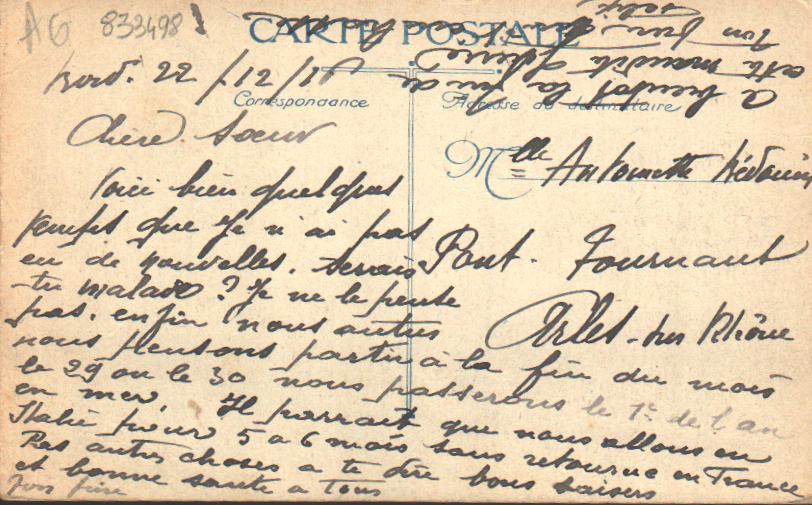 AG 833498
CARTE POSTALE
22/12/18
Correspondance
Adresse du destinataire
Chère Soeur
Voici bien quelques
temps que je n'ai pas
eu de nouvelles. Serais
tu malade? Je ne le pense
pas. enfin nous autres
nous pensons partir à la fin du mois
le 29 ou le 30 nous passerons le 1er de l'an
en mer. Il parrait que nous allons en
Italie pour 5 a 6 mois sans retourné en France
Pas autres choses a te dire bons baisers
et bonne santé a Tous
Ton frère
Mlle Antoinette
Pont. Tournant
Arles-sur Rhône